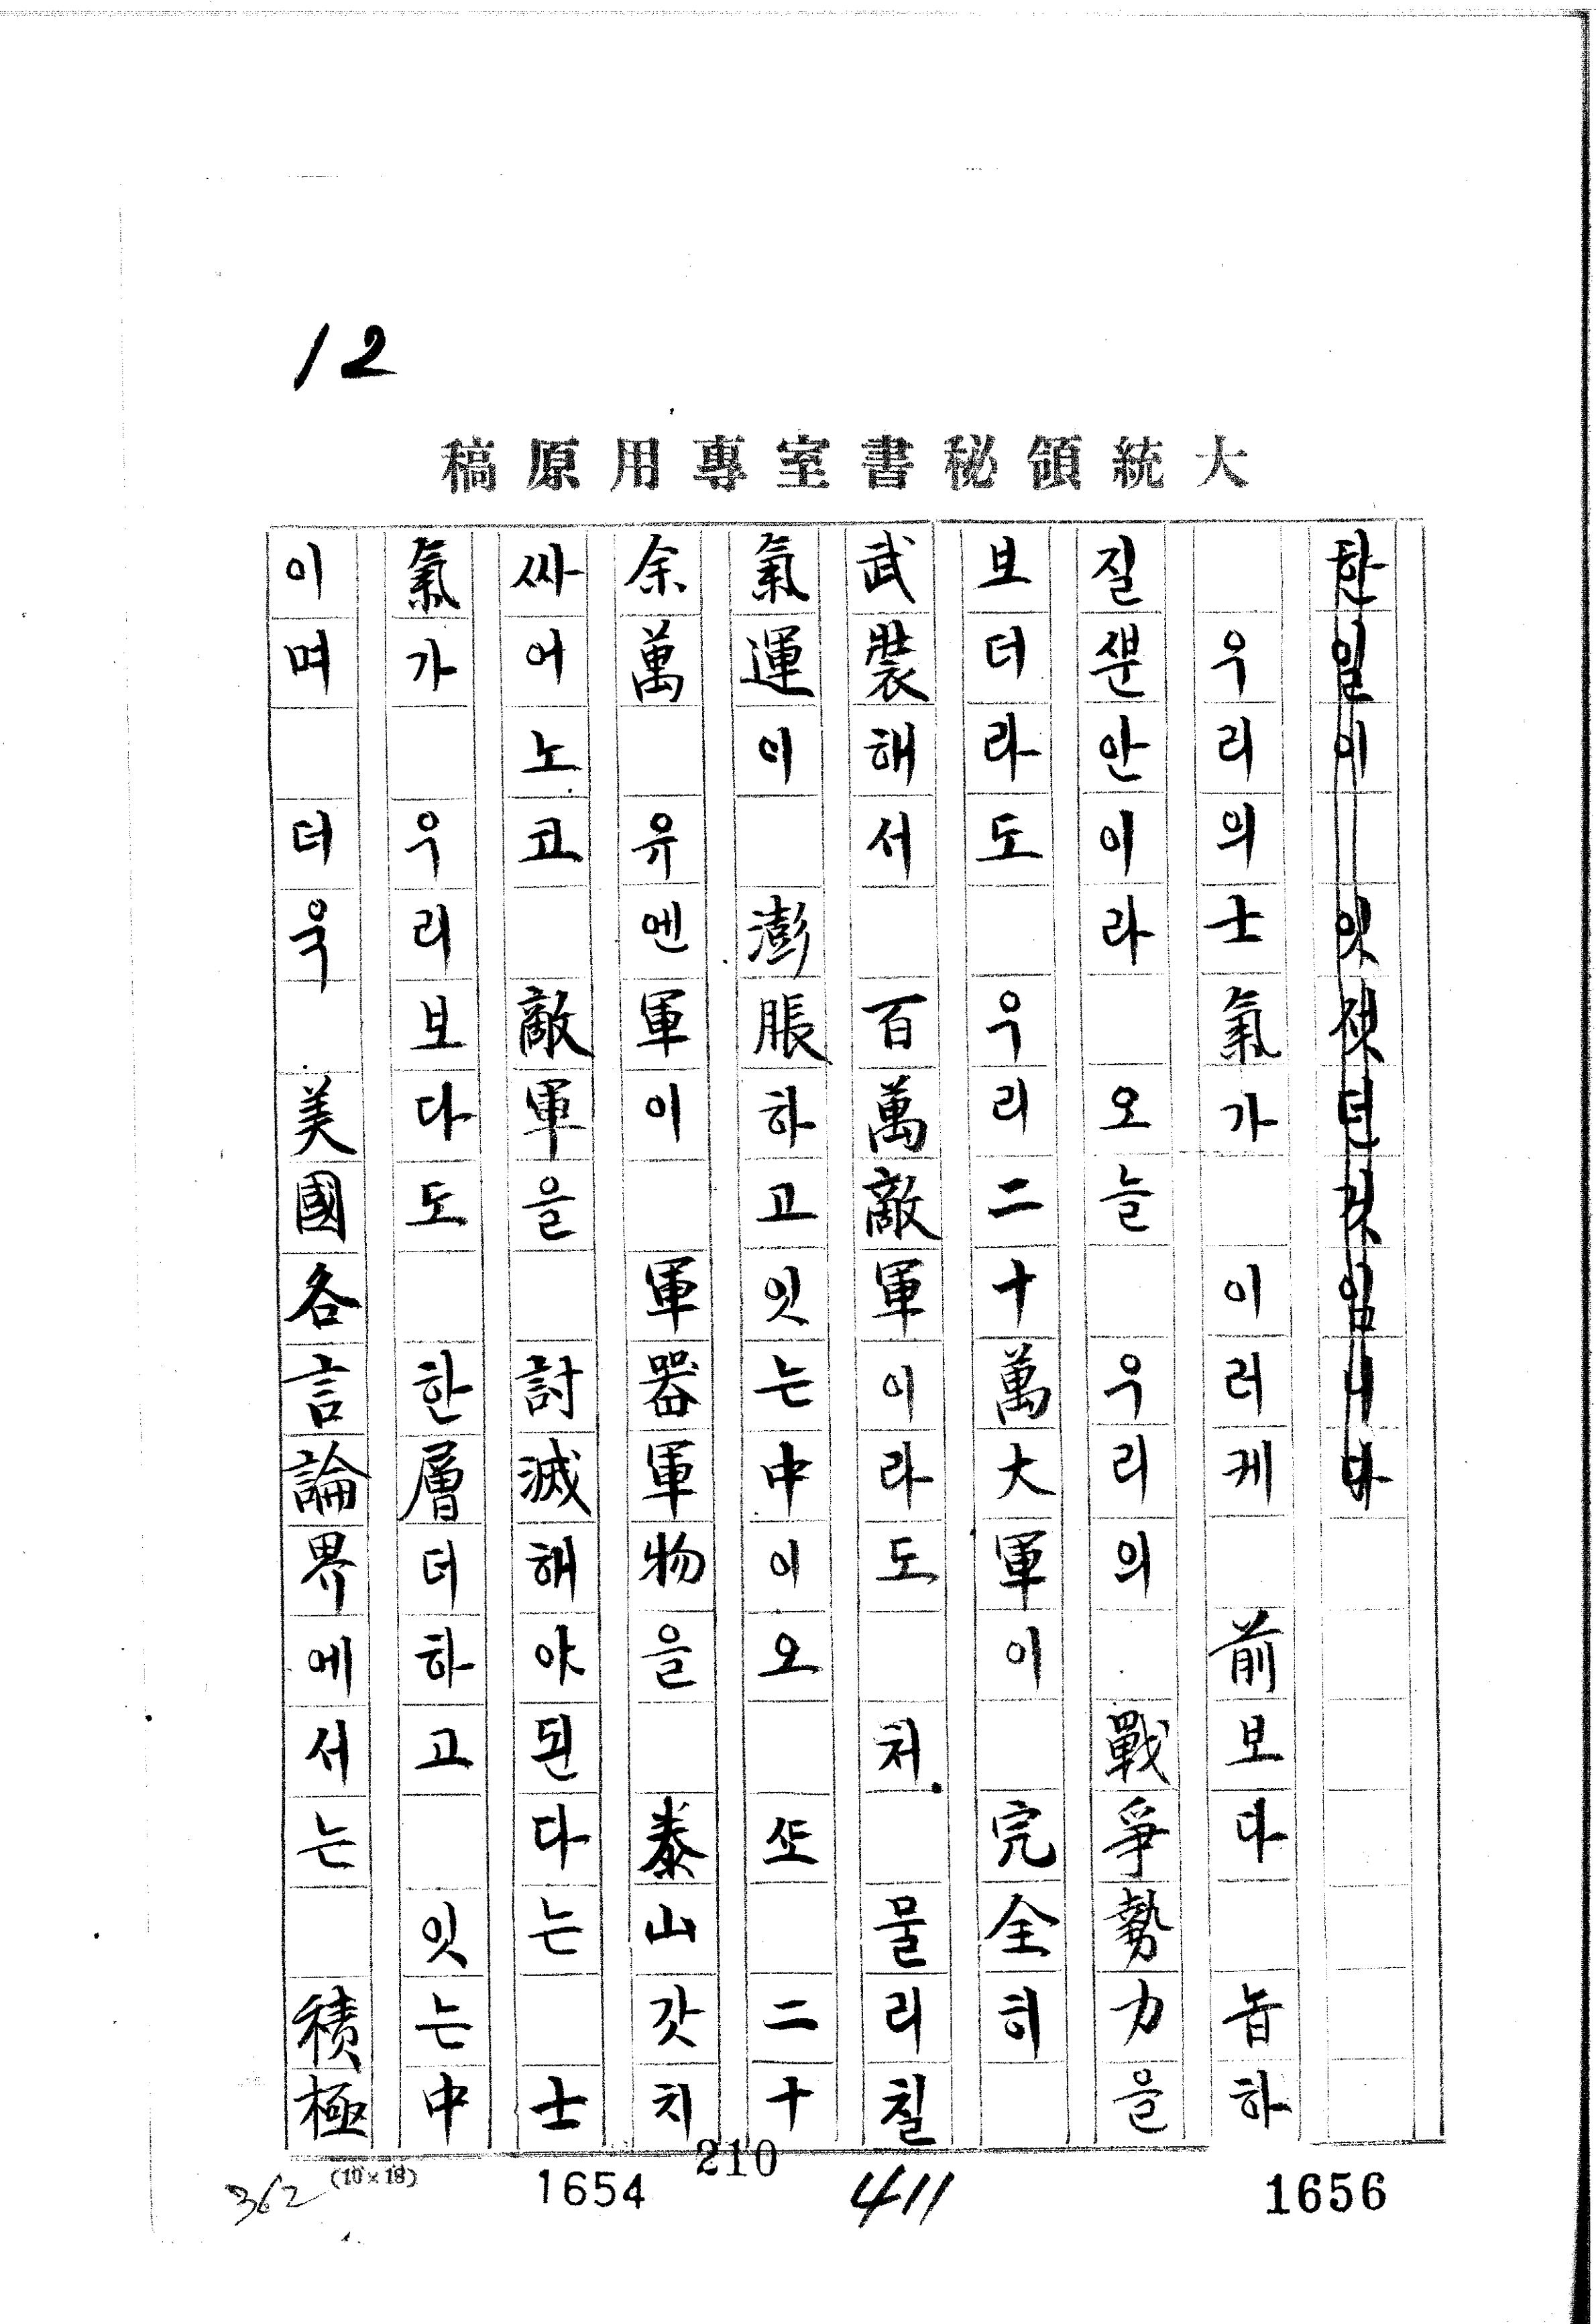 12
大統領秘書室專用原稿
한일이 잇섯던것임니다
우리의士氣가 이러케 前보다 놉하
질ᄲᅮᆫ안이라 오늘 우리의 戰爭勢力을
보더라도 우리二十萬大軍이 完全히
武裝해서 百萬敵軍이라도 처. 물리칠
氣運이 澎脹하고잇는中이오 ᄯᅩ 二十
余萬 유엔軍이 軍器軍物을 泰山갓치
싸어노코 敵軍을 討滅해야된다는 士
氣가 우리보다도 한層더하고 잇는中
이며 더욱 美國各言論界에서는 積極
362 (10×18) 1654 210 411 1656